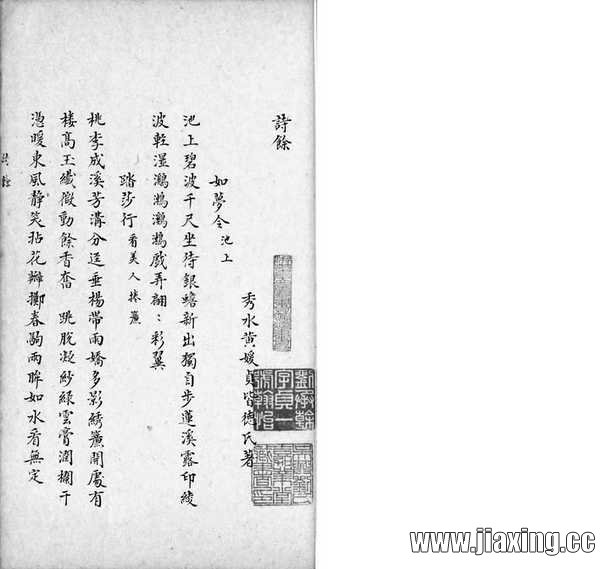 詩餘
秀水黃媛貞皆德氏著
如夢令 池上
池上碧波千尺坐待銀蟾新出獨自步蓮溪露印綾
波輕濕鸂鶒鸂鶒戲弄翩〻彩翼
踏莎行 看美人捲簾
桃李成溪芳溝分逕垂楊帶雨嬌多影綉簾開處有
樓高玉纖微動餘香奮 跳脫凝紗綠雲膏潤欄干
憑暖東風靜笑拈花瓣擲春駒兩眸如水看無定
詩餘
劉承幹
字貞一
號翰怡
www.jiaxing.cc